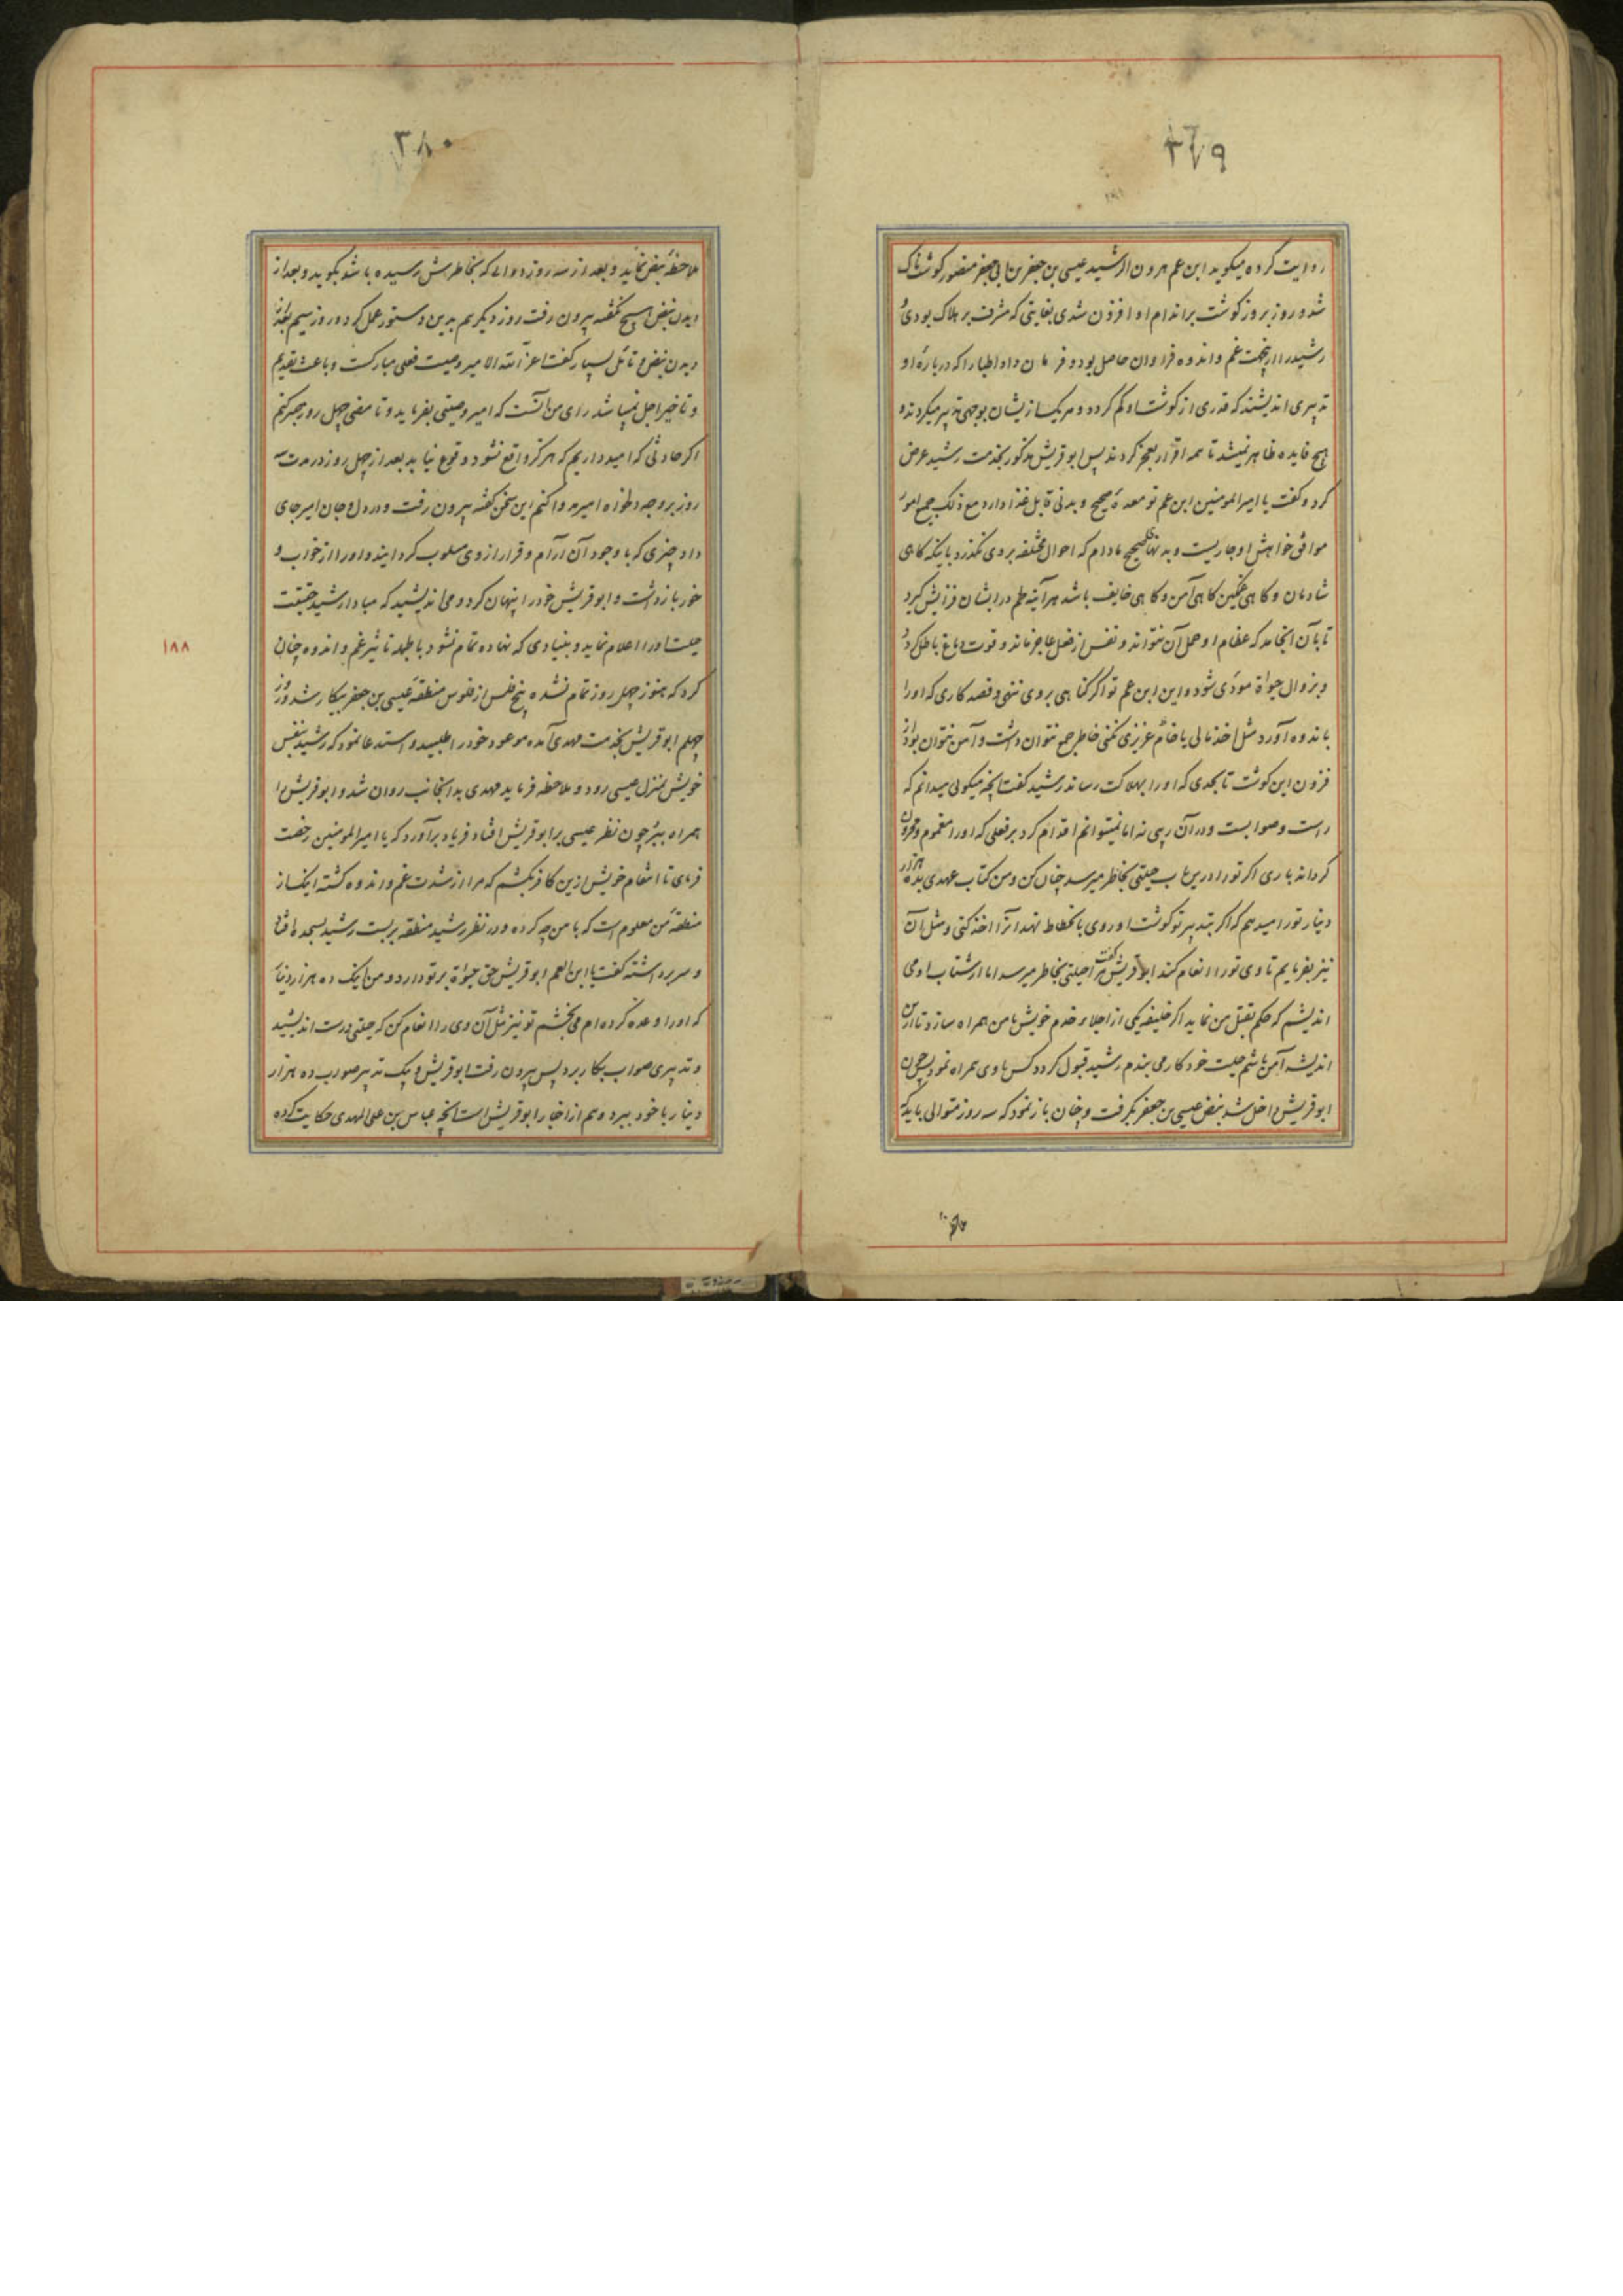 ۳۷۹
روایت کرده میکوید ابن عم هرون الرشید عیسی بن جعفر بن ابی جعفر منصور کوشتناک
شد و روز بروز کوشت بر اندام او افزون شدی بغایتی که مشرف بر هلاک بودی و
رشید را ازینجهت غم و اندوه فراوان حاصل بود و فرمان داد اطبا را که در بارهٔ او
تدبیری اندیشند که قدری از کوشت او کم کردد و هر یک از یشان بوجهی تدبیر میکردند و
هیچ فایده ظاهر نمیشد تا همه اقرار بعجز کردند پس ابو قریش مذکور بخدمت رشید عرض
کرد و کفت یا امیر المومنین ابن عم تو معدهٔ صحیح و بدنی قابل غذا دارد مع ذلک جمیع امور
موافق خواهش او جاریست و بدنهای صحیح مادام که احوال مختلفه بروی نکذرد باینکه کاهی
شادمان و کاهی غمکین کاهی آمن و کاهی خایف باشد هر آینه طم در ایشان فزایش کیرد
تا بآن انجامد که عظام او حمل آن نتواند و نفس از فعل عاجز ماند و قوت دماغ باطل کردد
و بزوال حیوة مودی شود و این ابن عم تو اکر کناهی بروی ننهی و قصد کاری که او را
باندوه آورد مثل اخذ مالی یا خادم عزیزی نکنی خاطر جمع نتوان داشت و آمن نتوان بود از
فزون این کوشت تا بحدی که او را بهلاکت رساند رشید کفت آنچه میکوئی میدانم که
راست و صوابست و در آن ریبی نه اما نمیتوانم اقدام کرد بر فعلی که او را مغموم و محزون
کرداند باری اکر تو را درین باب حیلتی بخاطر میرسد چنان کن و من کتاب عهدی بده هزار
دینار تو را میدهم که اکر بتدبیر تو کوشت او روی بانحطاط نهد آنرا اخذ کنی و مثل آن
نیز بفرمایم تا وی تو را انعام کند ابو قریش کفت مرا حیلتی بخاطر میرسد اما از شتاب او می
اندیشم که حکم بقتل من نماید اکر خلیفه یکی از اجلاء خدم خویش با من همراه سازد تا ازین
اندیشه آمن باشم حیلت خود کار می بندم رشید قبول کرد و کس با وی همراه نمود پس چون
ابو قریش داخل شد نبض عیسی بن جعفر بکرفت و چنان باز نمود که سه روز متوالی باید که
۳۸۰
ملاحظهٔ نبض نماید و بعد از سه روز دوائی که بخاطرش رسیده باشد بکوید و بعد از
دیدن نبض هیچ نکفته بیرون رفت روز دیکر هم بدین دستور عمل کرد و روز سیم بعد از
دیدن نبض و تامل بسیار کفت اعز الله الامیر وصیت فعلی مبارکست و باعث تقدیم
و تاخیر اجل نمیباشد رای من آنست که امیر وصیتی بفرماید و تا مضی چهل روز صبر کنم
اکر حادثی که امید داریم که هرکز واقع نشود وقوع نیابد بعد از چهل روز در مدت سه
روز بر وجه دلخواه امیر مداوا کنم این سخن کفته بیرون رفت و در دل و جان امیر جای
داد چیزی که با وجود آن آرام و قرار از وی مسلوب کردانید و او را از خواب و
خور باز داشت و ابو قریش خود را پنهان کرد و می اندیشید که مبادا رشید حقیقت
حیلت او را اعلام نماید و بنیادی که نهاده تمام نشود بالجمله تاثیر غم و اندوه چنان
کرد که هنوز چهل روز تمام نشده پنج فلس از فلوس منطقهٔ عیسی بن جعفر بیکار شد روز
۱۸۸
چهلم ابو قریش بخدمت مهدی آمده موعود خود را طلبید و استدعا نمود که رشید بنفس
خویش بمنزل عیسی رود و ملاحظه فرماید مهدی بدانجانب روان شد و ابو قریش را
همراه ببرد چون نظر عیسی بر ابو قریش افتاد فریاد برآورد که یا امیر المومنین رخصت
فرمای تا انتقام خویش ازین کافر بکشم که مرا از شدت غم و اندوه کشته اینک از
منطقهٔ من معلوم است که با من چه کرده و در نظر رشید منطقه بر بست رشید بسجده افتاد
و سر برداشته کفت یا ابن العم ابو قریش حق حیوة بر تو دارد و من اینک ده هزار دینار
که او را وعده کرده ام می بخشم تو نیز مثل آن وی را انعام کن که حیلتی درست اندیشید
و تدبیری صواب بکار برد پس بیرون رفت ابو قریش و بیک تدبیر صواب ده هزار
دینار با خود ببرد و هم از اخبار ابو قریش است آنچه عباس بن علی المهدی حکایت کرده